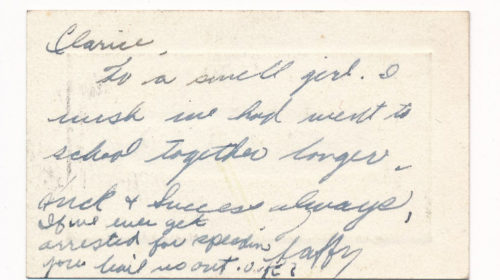 Clarice,
To a swell girl. I
wish we had went to
school together longer.
Luck & Success always,
If we ever get
arrested for speedin
you bail us out. O.K.?
Laffy